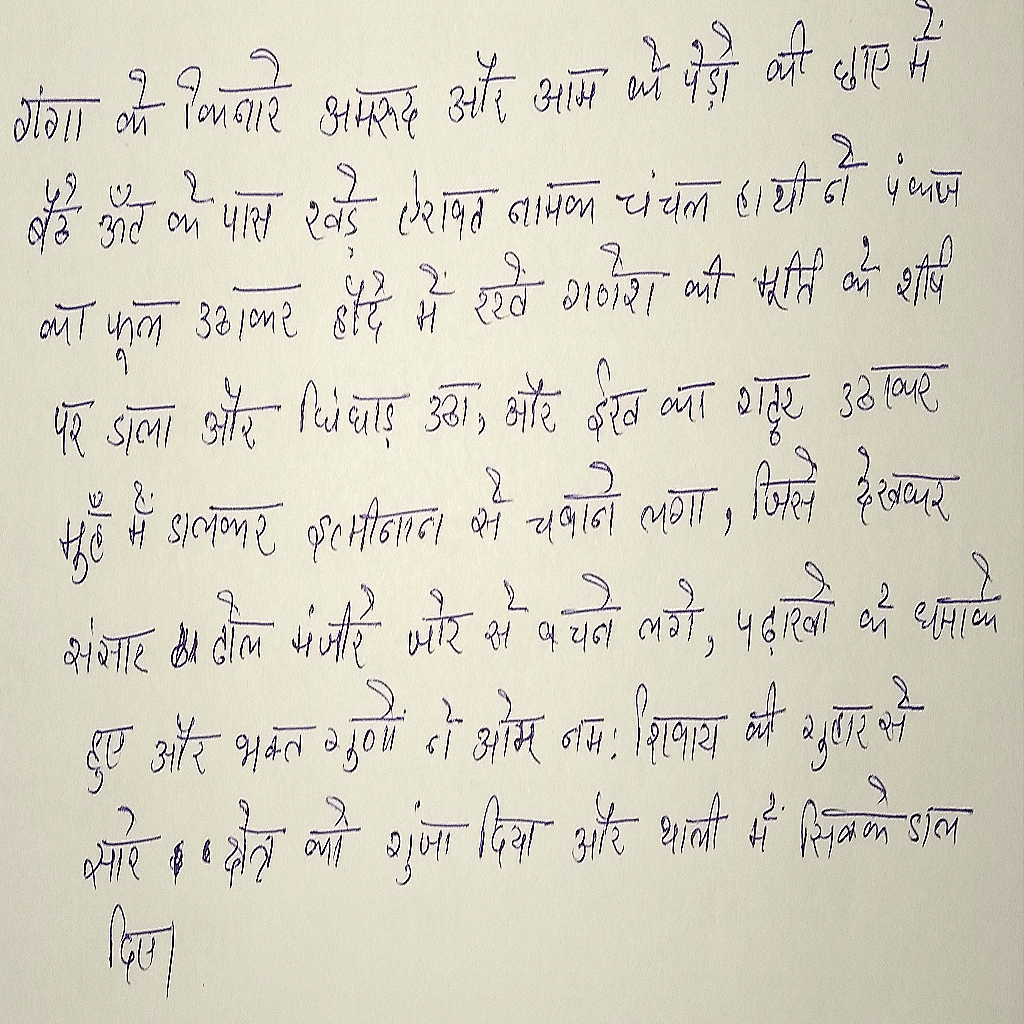 गंगा के किनारे अमरूद और आम के पेड़ो की छाए में
बैठे ऊँट के पास खड़े ऐरावत नामक चंचल हाथी ने पंकज
का फूल उठाकर हौदे में रखे गणेश की मूर्ति के शीर्ष
पर डाला और चिंघाड़ उठा, और ईख का गट्ठर उठाकर
मुहँ में डालकर इत्मीनान से चबाने लगा, जिसे देखकर
संसार ढोल मंजीरे जोर से बचने लगे, पढ़ाखो के धमाके
हुए और भक्त गुणों ने ओम नमः शिवाय की गुहार से
सारे क्षेत्र को गुंजा दिया और थाली में सिक्के डाल
दिए।